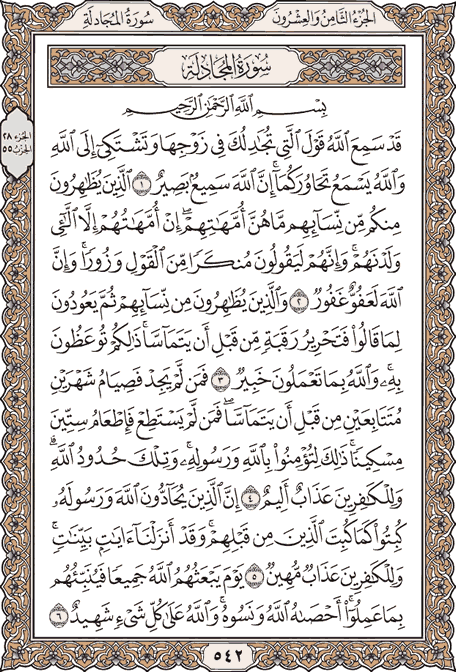 سُورَةُ المُجَادلَةِ
الجُزءُ الثَّامِنُ وَالعِشْرُونَ
الجزء ٢٨
الحزب ٥٥
سُورَةُ المُجَادلَةِ
بِسْمِ اللَّهِ الرَّحْمَٰنِ الرَّحِيمِ
قَدْ سَمِعَ اللَّهُ قَوْلَ الَّتِي تُجَٰدِلُكَ فِي زَوْجِهَا وَتَشْتَكِيٓ إِلَى اللَّهِ
وَاللَّهُ يَسْمَعُ تَحَاوُرَكُمَآ ۚ إِنَّ اللَّهَ سَمِيعٌۢ بَصِيرٌ ١ الَّذِينَ يُظَٰهِرُونَ
مِنكُم مِّن نِّسَآئِهِم مَّا هُنَّ أُمَّهَٰتِهِمْ ۖ إِنْ أُمَّهَٰتُهُمْ إِلَّا الَّٰٓـِٔي
وَلَدْنَهُمْ ۚ وَإِنَّهُمْ لَيَقُولُونَ مُنكَرًا مِّنَ الْقَوْلِ وَزُورًا ۚ وَإِنَّ
اللَّهَ لَعَفُوٌّ غَفُورٌ ٢ وَالَّذِينَ يُظَٰهِرُونَ مِن نِّسَآئِهِمْ ثُمَّ يَعُودُونَ
لِمَا قَالُوا۟ فَتَحْرِيرُ رَقَبَةٍ مِّن قَبْلِ أَن يَتَمَآسَّا ۚ ذَٰلِكُمْ تُوعَظُونَ
بِهِۦ ۚ وَاللَّهُ بِمَا تَعْمَلُونَ خَبِيرٌ ٣ فَمَن لَّمْ يَجِدْ فَصِيَامُ شَهْرَيْنِ
مُتَتَابِعَيْنِ مِن قَبْلِ أَن يَتَمَآسَّا ۖ فَمَن لَّمْ يَسْتَطِعْ فَإِطْعَامُ سِتِّينَ
مِسْكِينًا ۚ ذَٰلِكَ لِتُؤْمِنُوا۟ بِاللَّهِ وَرَسُولِهِۦ ۚ وَتِلْكَ حُدُودُ اللَّهِ ۗ
وَلِلْكَٰفِرِينَ عَذَابٌ أَلِيمٌ ٤ إِنَّ الَّذِينَ يُحَآدُّونَ اللَّهَ وَرَسُولَهُۥ
كُبِتُوا۟ كَمَا كُبِتَ الَّذِينَ مِن قَبْلِهِمْ ۚ وَقَدْ أَنزَلْنَآ ءَايَٰتٍۭ بَيِّنَٰتٍ ۚ
وَلِلْكَٰفِرِينَ عَذَابٌ مُّهِينٌ ٥ يَوْمَ يَبْعَثُهُمُ اللَّهُ جَمِيعًا فَيُنَبِّئُهُم
بِمَا عَمِلُوٓا۟ ۚ أَحْصَىٰهُ اللَّهُ وَنَسُوهُ ۚ وَاللَّهُ عَلَىٰ كُلِّ شَيْءٍ شَهِيدٌ ٦
٥٤٢